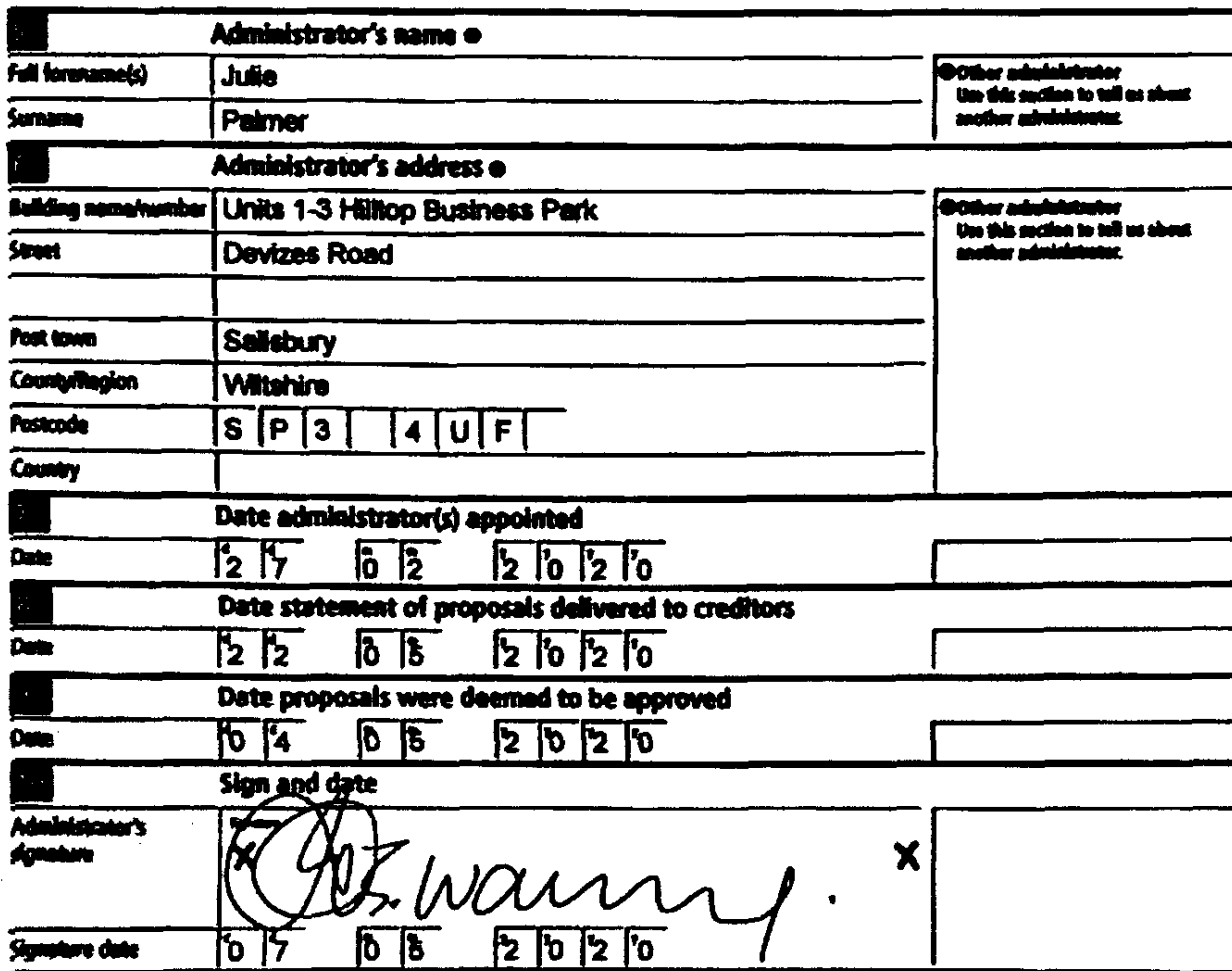 Administrator's name
Full forename(s) Julie
Surname Palmer
Other administrator
Use this section to tell us about
another administrator.
Administrator's address
Building name/number Units 1-3 Hilltop Business Park
Street Devizes Road
Post town Salisbury
County/Region Wiltshire
Postcode S P 3 4 U F
Country
Other administrator
Use this section to tell us about
another administrator.
Date administrator(s) appointed
Date 2 7 0 2 2 0 2 0
Date statement of proposals delivered to creditors
Date 2 2 0 5 2 0 2 0
Date proposals were deemed to be approved
Date 0 4 0 5 2 0 2 0
Sign and date
Administrator's
signature X X
Signature date 0 7 0 5 2 0 2 0